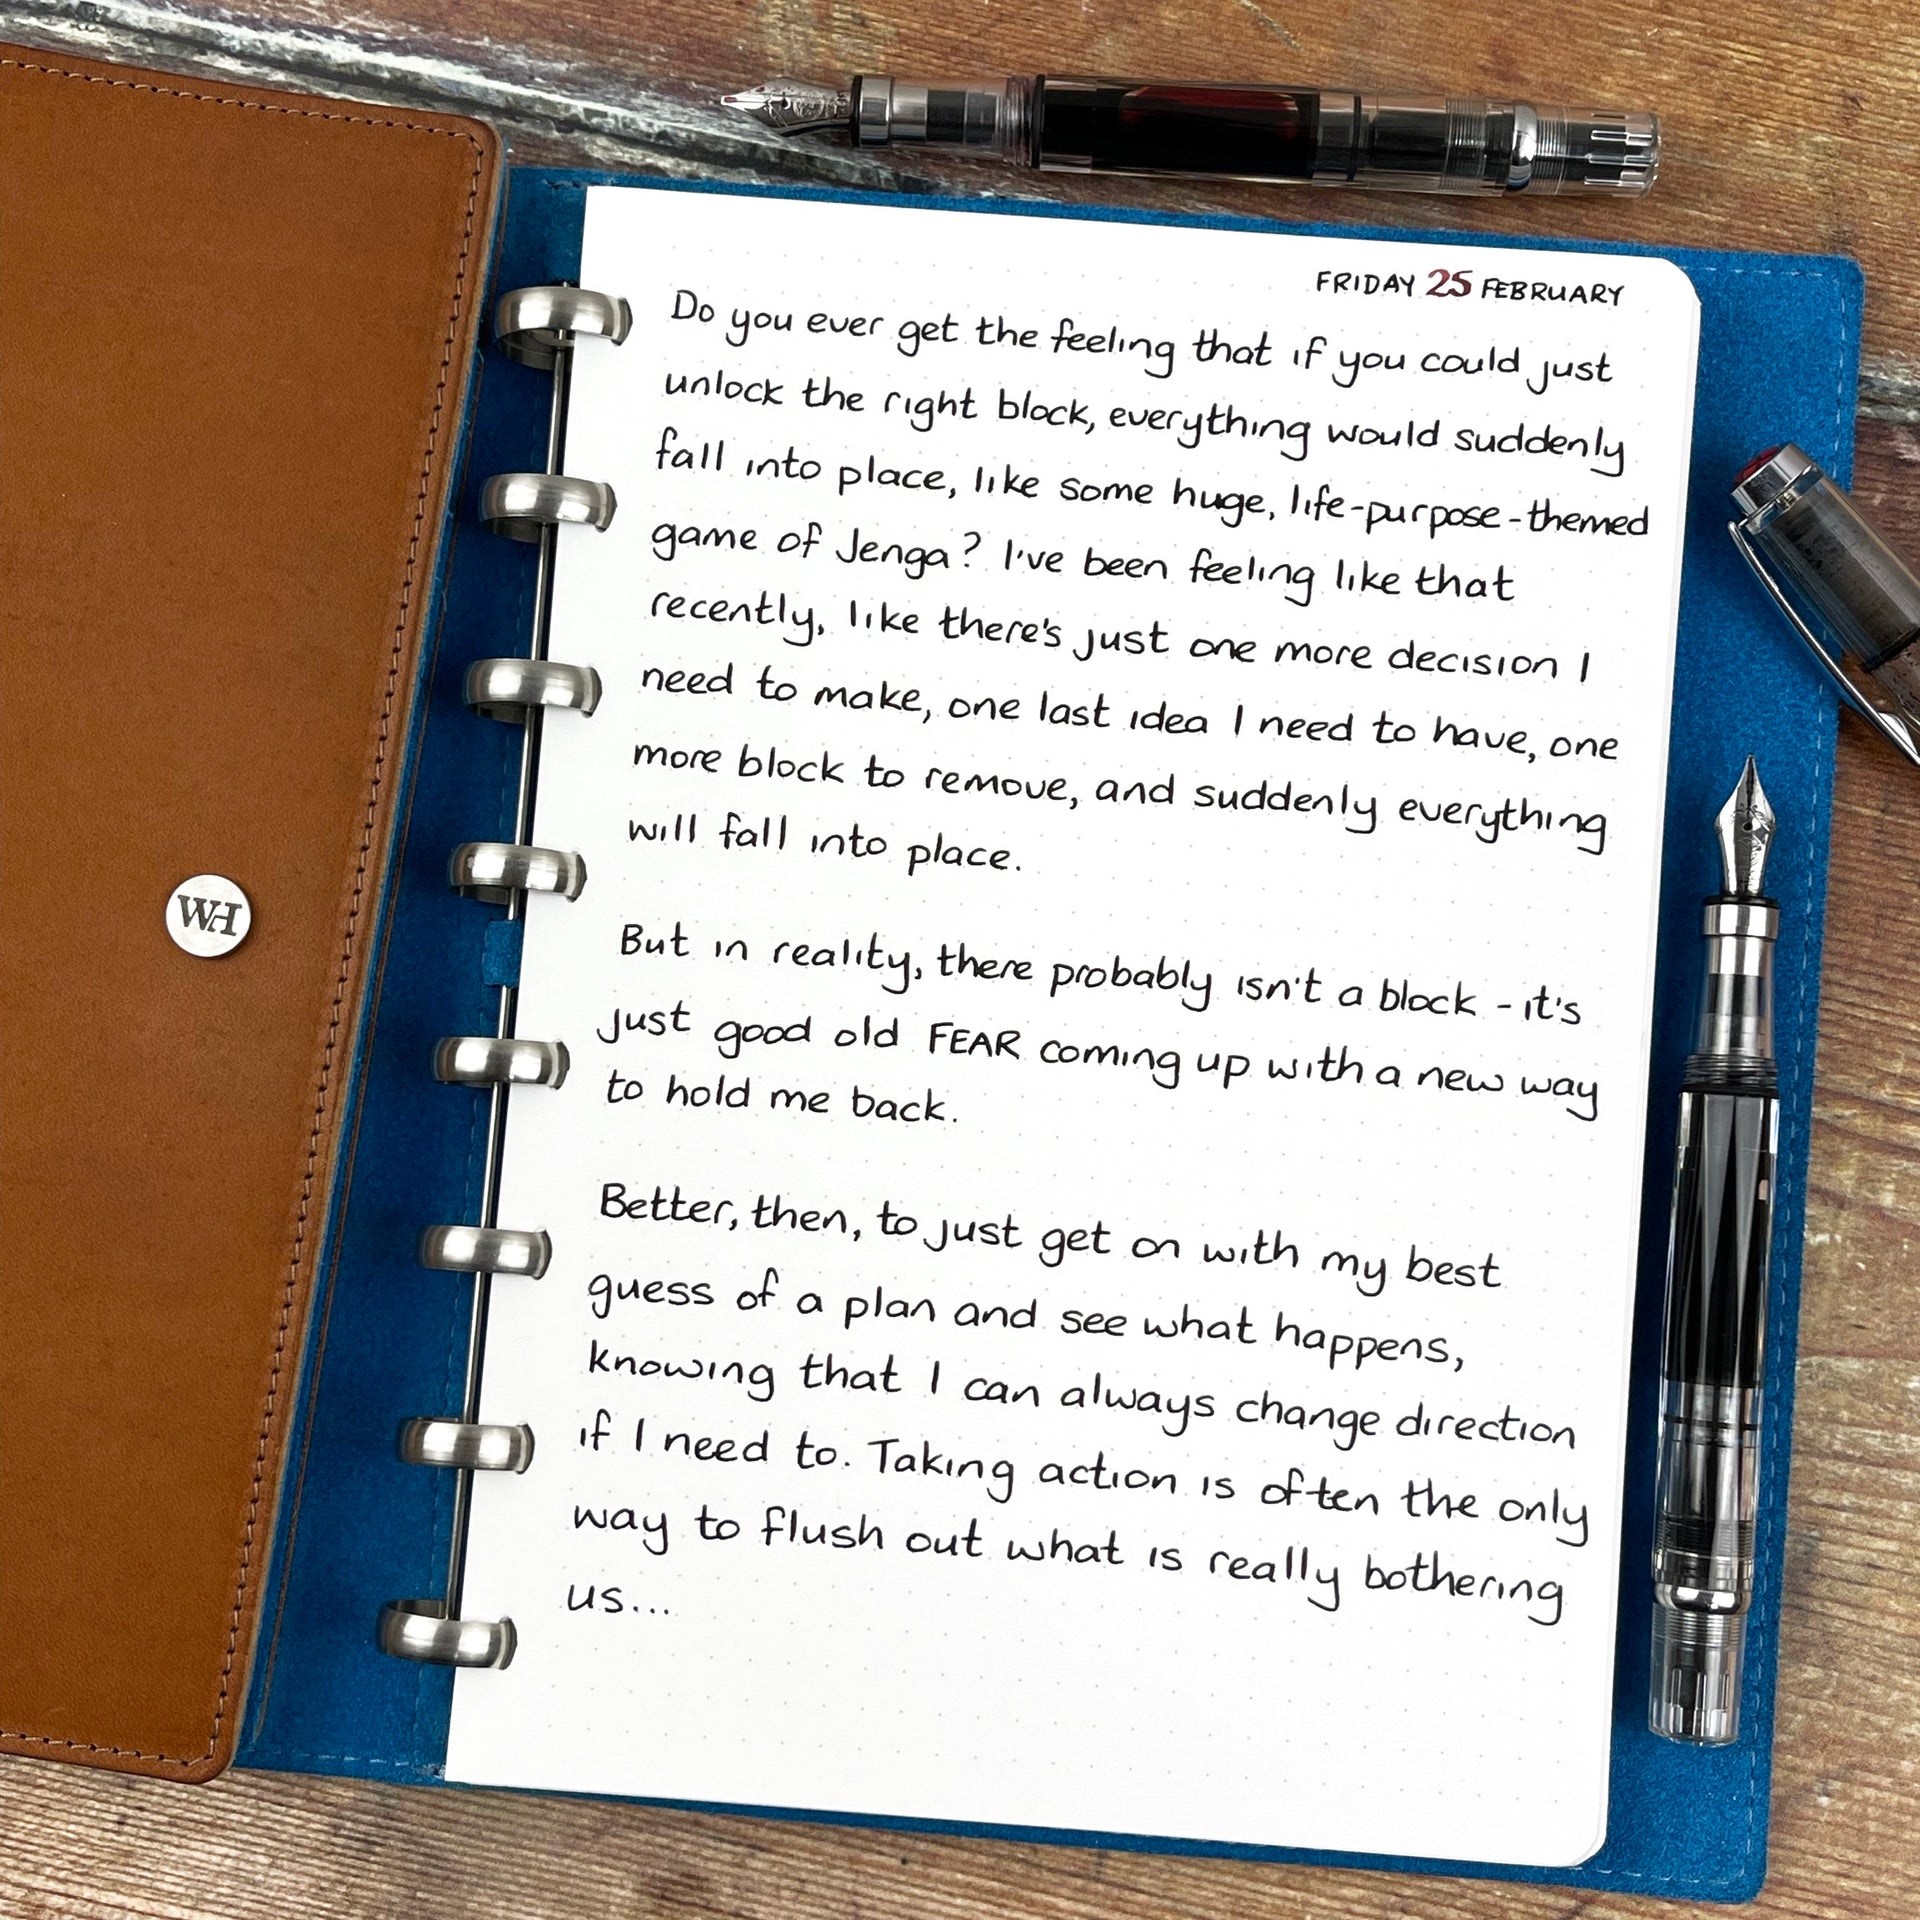 FRIDAY 25 FEBRUARY
Do you ever get the feeling that if you could just
unlock the right block, everything would suddenly
fall into place, like some huge, life-purpose-themed
game of Jenga? I've been feeling like that
recently, like there's just one more decision I
need to make, one last idea I need to have, one
more block to remove, and suddenly everything
will fall into place.
But in reality, there probably isn't a block - it's
just good old FEAR coming up with a new way
to hold me back.
Better, then, to just get on with my best
guess of a plan and see what happens,
knowing that I can always change direction
if I need to. Taking action is often the only
way to flush out what is really bothering
us...
WH